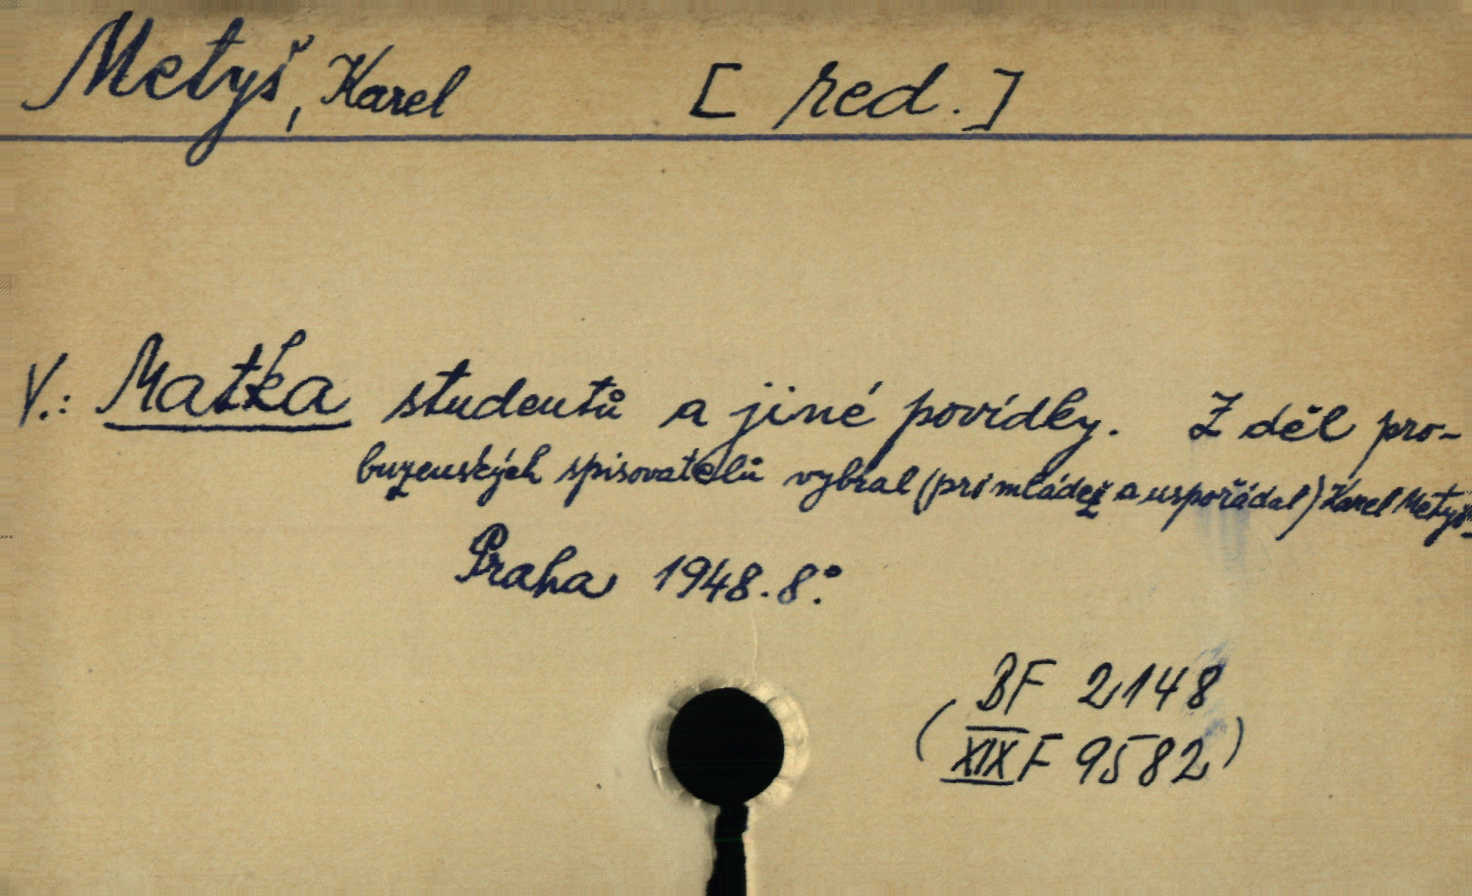 Metyš, Karel [red.]
V.: Matka studentů a jiné povídky. Z děl pro-
buzenských spisovatelů vybral (pri mládež a uspořádal) Karel Metyš.
Praha 1948. 8°.
BF 2148
(XIX F 9582)